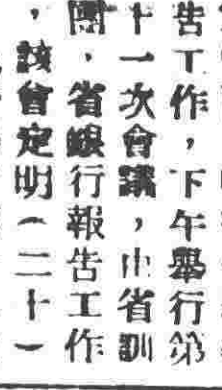 告工作，下午舉行第
十一次會議，由省訓
團，省銀行報告工作
，該會定明（二十）